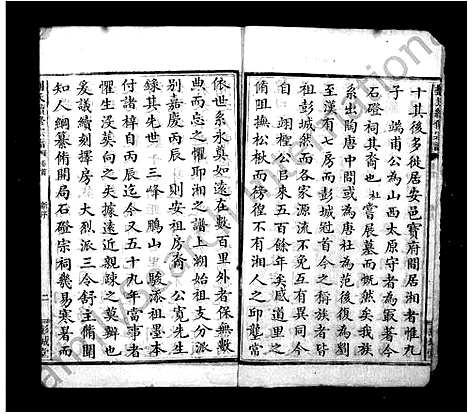 十其後多徙居安邑寶府間居湘者惟九
子 端甫公為山西太原守者為最著今
石磴祠其裔也 嘗展墓而慨然矣我族
系出陶唐中間或為唐杜為范後復為劉
至漢有七房而彭城冠首今之稱族者皆
祖彭城然而各家源流不免互有異同今
自 翊樫公官來五百餘年矣感道里之
脩阻撫松楸而徬徨不有湘人之邱壟當
依世系永奠如遠在數百里外者保無數
典而忘之懼耶湘之譜上溯始祖支分派
別嘉慶丙辰 則安祖房裔 公寬先生
錄其先世 三峰 鵬山 駿添祖墨本
付諸梓自丙辰迄今又五十九年當事者
懼生沒莫向之失據遠近親疎之莫辨也
爰議續刻擇房 大烈派三今舒主脩開
知人綱纂脩開局石磴宗祠幾易寒暑而